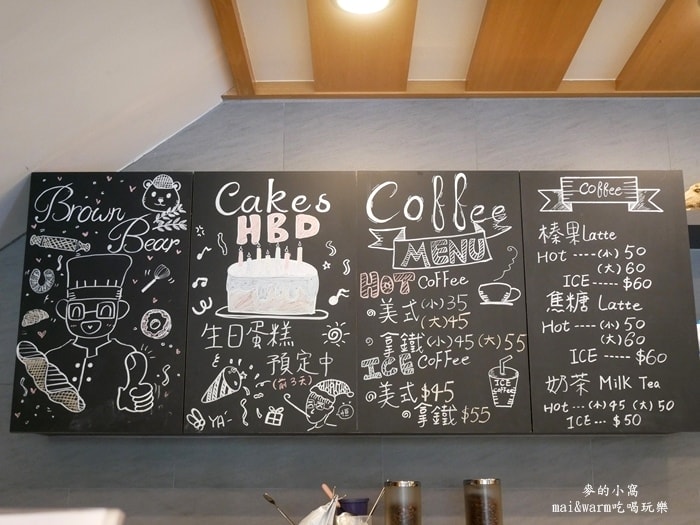 Brown
Bear
Cakes
HBD
生日蛋糕
預定中
(前3天)
YA!
Coffee
MENU
HOT Coffee
美式 (小)35
(大)45
拿鐵 (小)45 (大)55
ICE Coffee
美式 $45
拿鐵 $55
ICE
coffee
coffee
榛果Latte
Hot ----(小) 50
(大) 60
ICE ----- $60
焦糖 Latte
Hot ----(小) 50
(大) 60
ICE ----- $60
奶茶 Milk Tea
Hot ---(小)45 (大) 50
ICE--- $50
麥的小窩
mai&warm吃喝玩樂